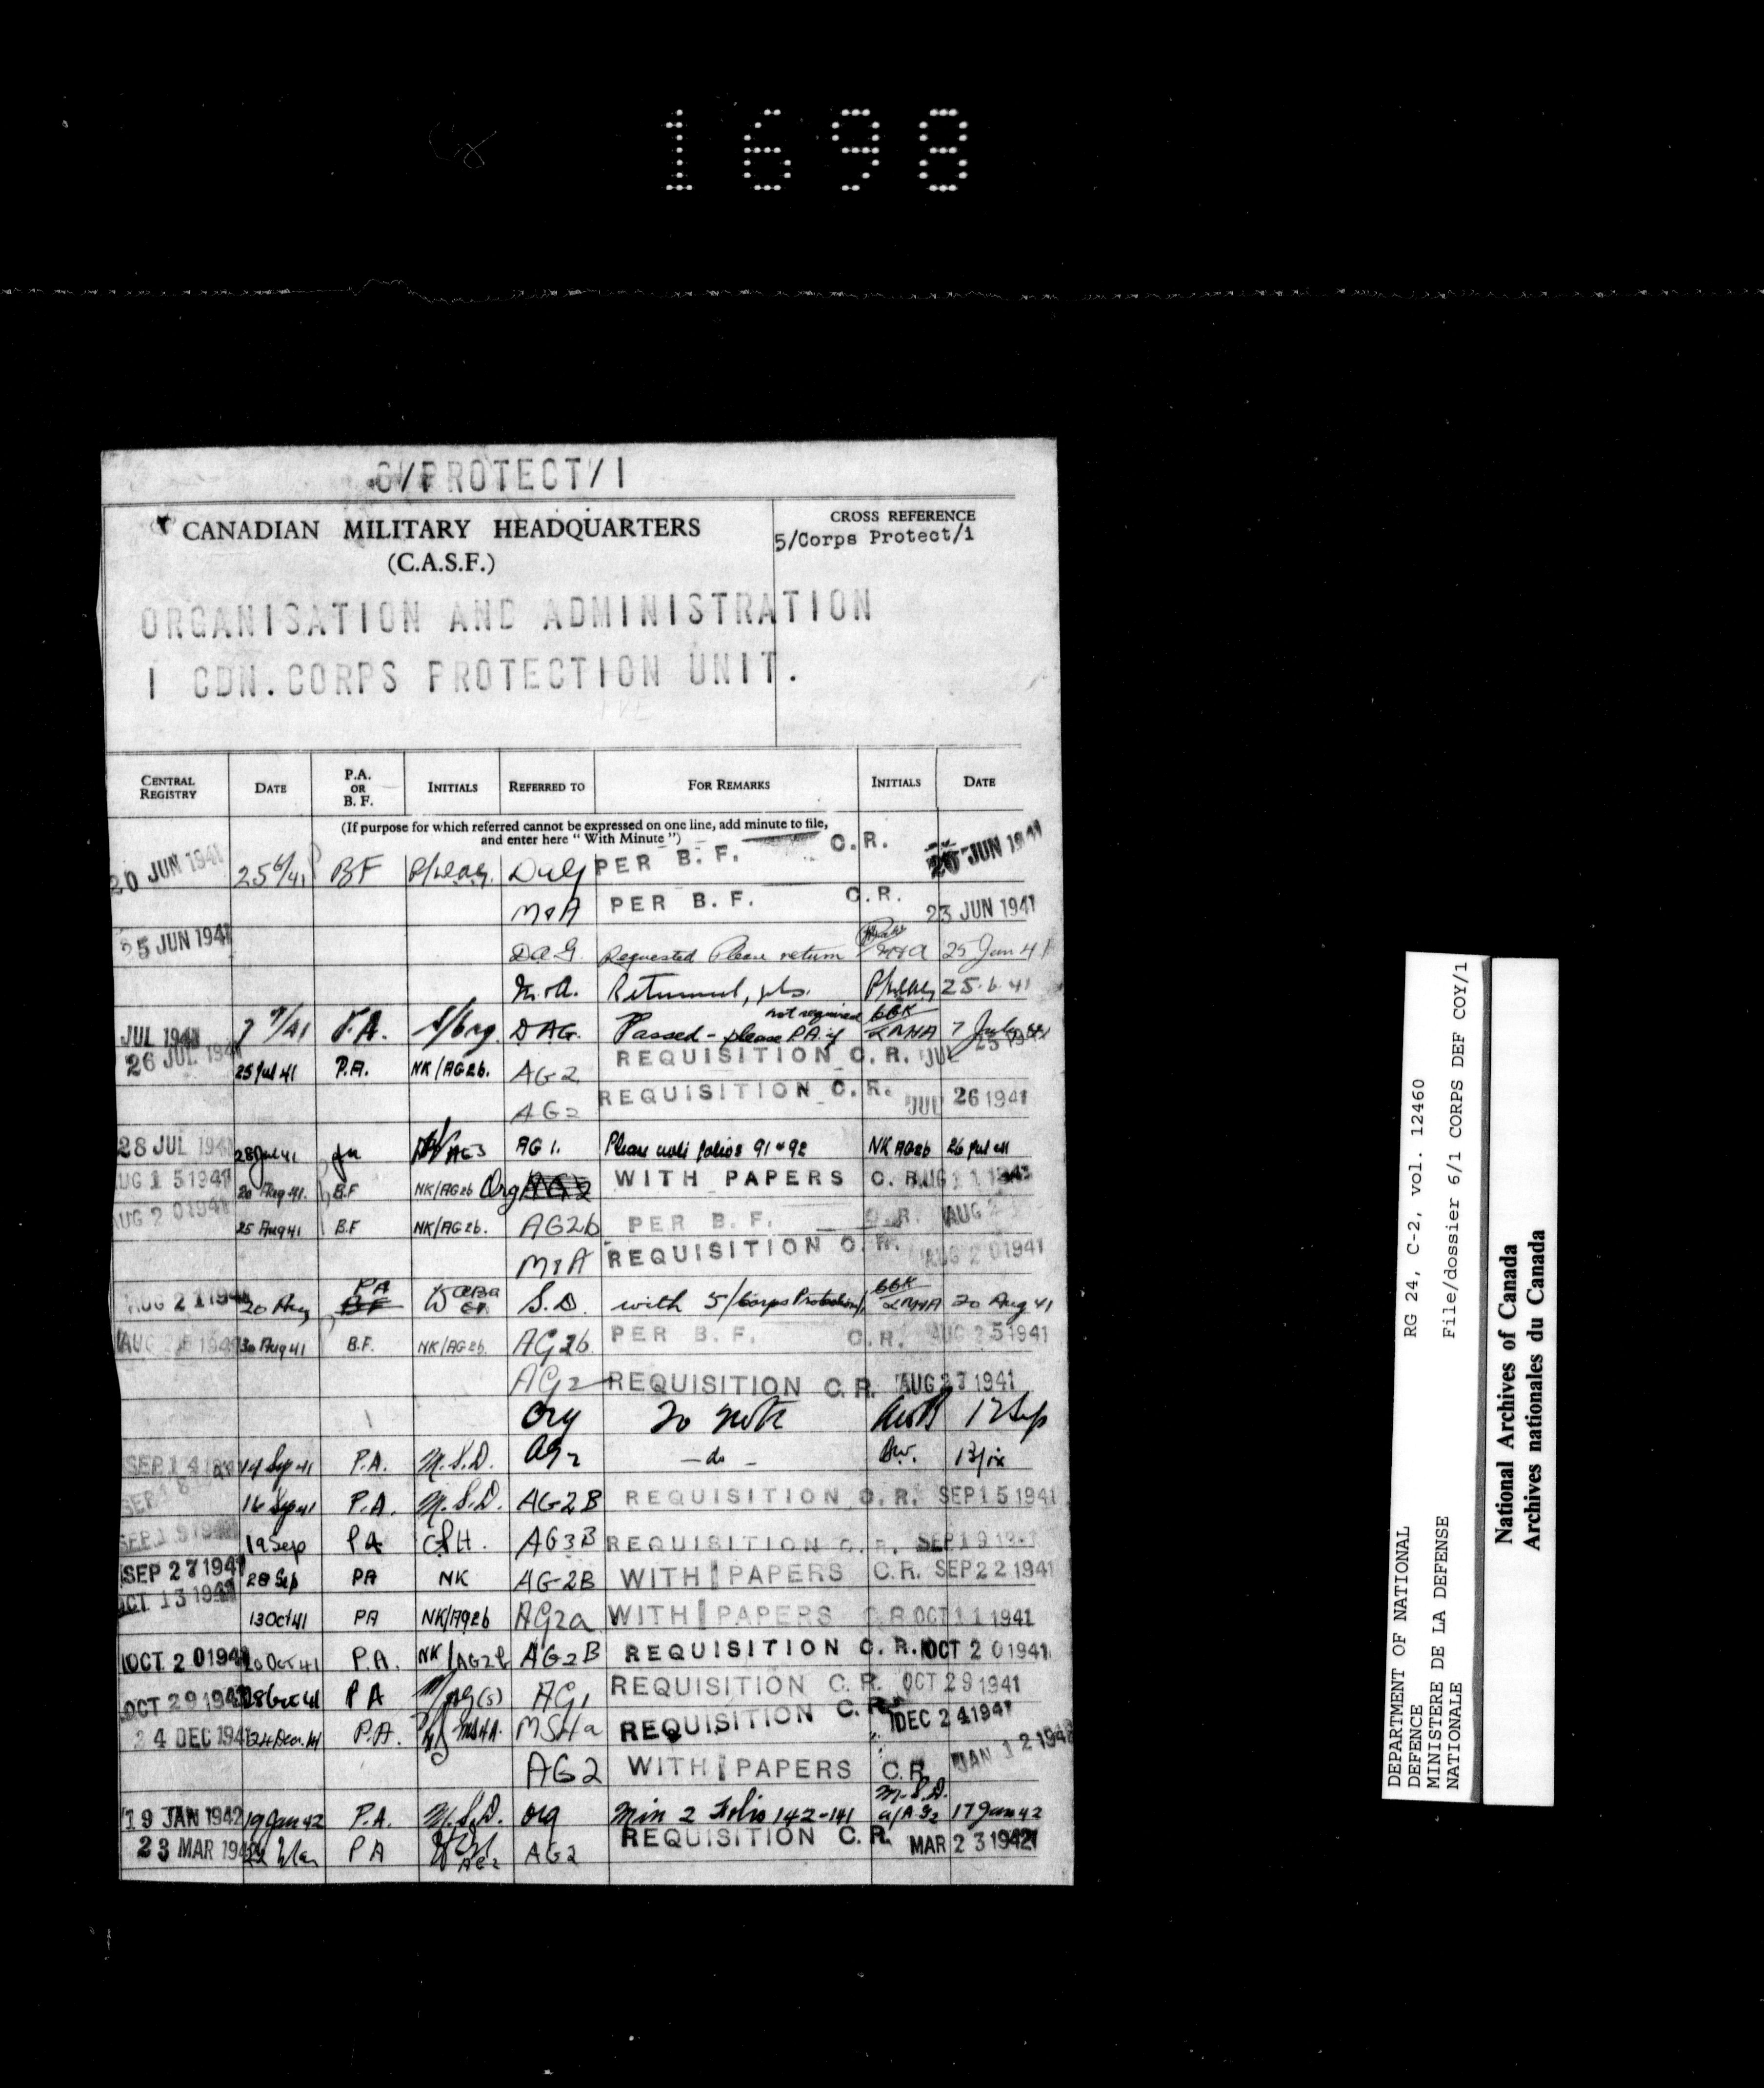 1698
6/PROTECT/1
CANADIAN MILITARY HEADQUARTERS
(C.A.S.F.)
CROSS REFERENCE
5/Corps Protect/1
ORGANISATION AND ADMINISTRATION
1 CDN.CORPS PROTECTION UNIT.
CENTRAL REGISTRY DATE P.A. OR B. F. INITIALS REFERRED TO FOR REMARKS INITIALS DATE
(If purpose for which referred cannot be expressed on one line, add minute to file,
and enter here "With Minute")
20 JUN 1941 25 6/41 BF DAG PER B. F. C.R. JUN 1941
M&A PER B. F. C.R. 23 JUN 1941
25 JUN 1941 DAG. Requested Please return 25 Jun 41
Returned, pls. 25.6.41
not required
JUL 1941 7 7/41 P.A. DAG. Passed - please PA if 7 July 41
26 JUL 1941 25 Jul 41 P.A. NK/AG2b. AG2 REQUISITION C.R. JUL 25 1941
AG2 REQUISITION C.R. JUL 26 1941
28 JUL 1941 28 Jul 41 AG3 AG 1. Please folios 91 & 92 NK AG2b 26 Jul 41
AUG 15 1941 20 Aug 41. B.F NK/AG2b Org AG2 WITH PAPERS C.R. AUG 11 1941
AUG 20 1941 25 Aug 41 B.F NK/AG2b. AG2b PER B. F. C.R. AUG 2
M&A REQUISITION C.R. AUG 20 1941
AUG 21 1941 20 Aug PA BF S.D. with 5/Corps Protection/1 20 Aug 41
AUG 1941 30 Aug 41 B.F. NK/AG2b. AG2b PER B. F. C.R. AUG 25 1941
AG2 REQUISITION C.R. AUG 27 1941
Org To note 12 Sep
SEP 14 1941 14 Sep 41 P.A. M.S.D. AG2 - do - 13/ix
SEP 18 16 Sep 41 P.A. M.S.D. AG2B REQUISITION C.R. SEP 15 1941
SEP 19 1941 19 Sep PA AG3B REQUISITION C.R. SEP 19 1941
SEP 27 1941 28 Sep PA NK AG-2B WITH PAPERS C.R. SEP 22 1941
OCT 13 1941 13 Oct 41 PA NK/AG2b AG2a WITH PAPERS C.R OCT 11 1941
OCT 20 1941 20 Oct 41 P.A. NK/AG2b AG2B REQUISITION C.R. OCT 20 1941
OCT 29 1941 PA AG(s) AG1 REQUISITION C.R. OCT 29 1941
24 DEC 1941 24 Dec. 41 P.A. MS&A MS&a REQUISITION C.R. DEC 24 1941
AG2 WITH PAPERS C.R. JAN 12 1942
19 JAN 1942 19 Jan 42 P.A. M.S.D. Org Min 2 Folio 142-141 M.S.D. 17 Jan 42
23 MAR 1942 Mar PA AG2 AG2 REQUISITION C.R. MAR 23 1942
DEPARTMENT OF NATIONAL
DEFENCE
MINISTERE DE LA DEFENSE
NATIONALE
RG 24, C-2, vol. 12460
File/dossier 6/1 CORPS DEF COY/1
National Archives of Canada
Archives nationales du Canada